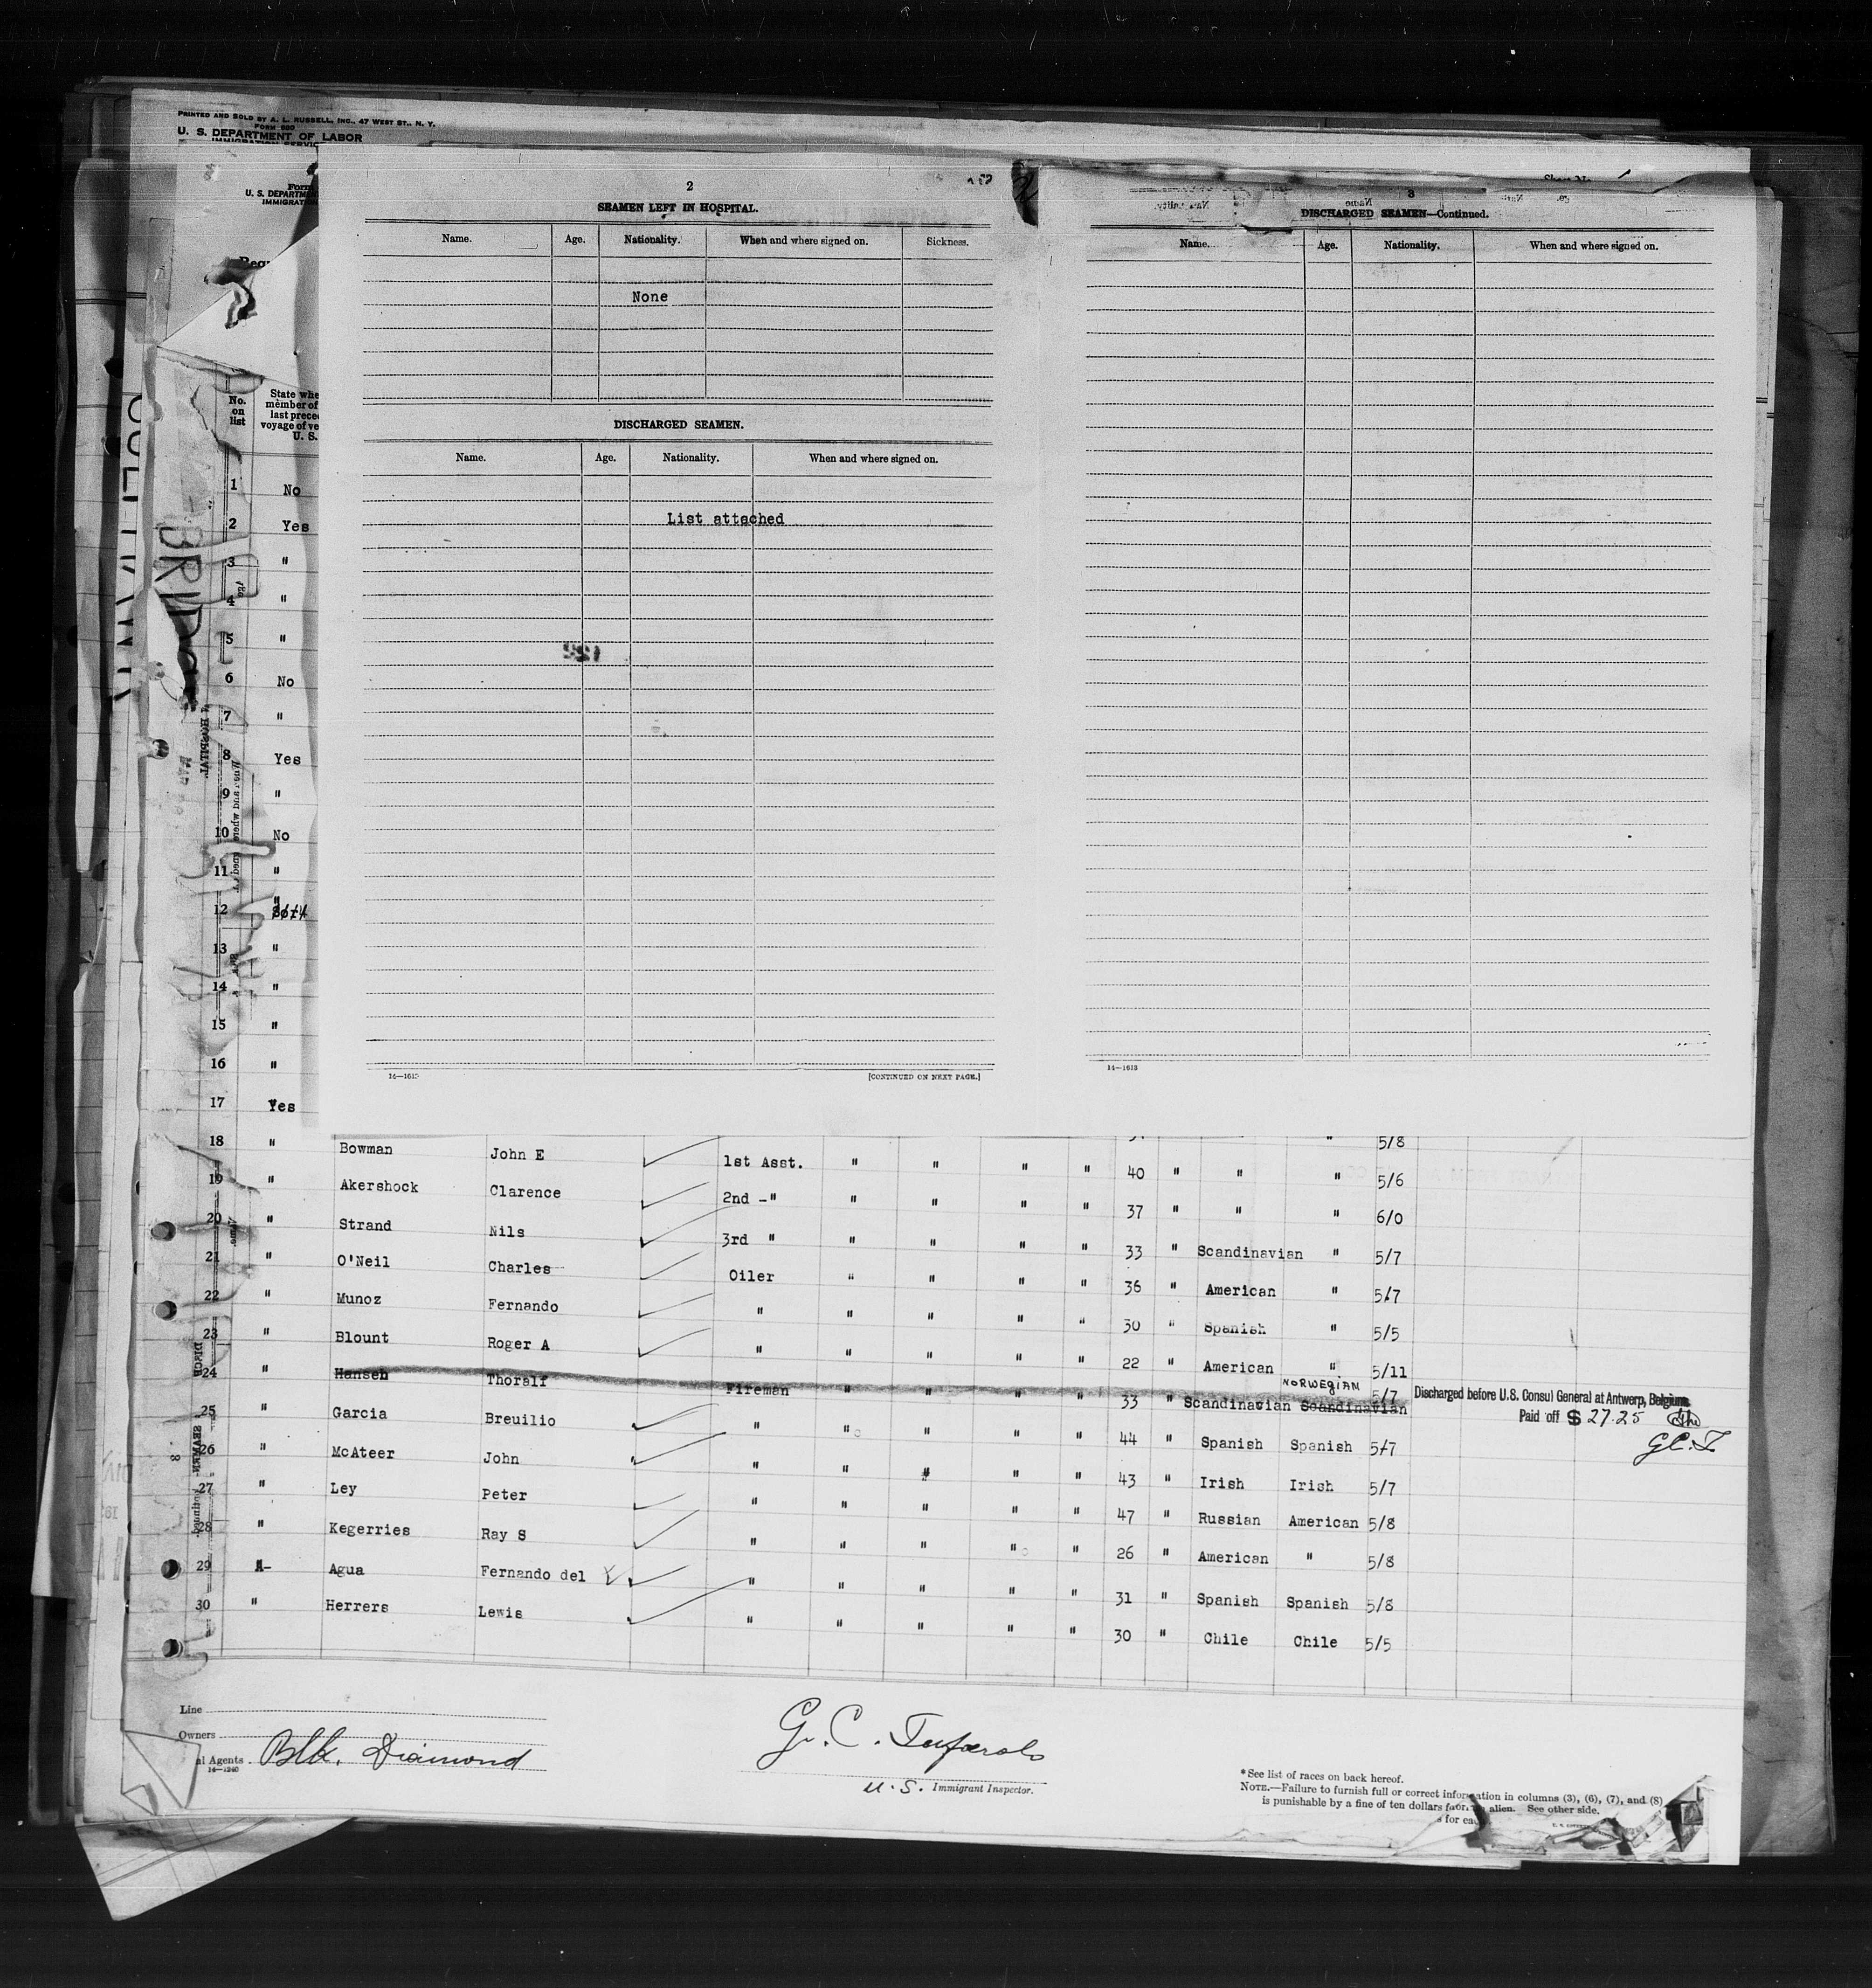 PRINTED AND SOLD BY A. L. RUSSELL, INC., 47 WEST ST., N. Y.
FORM 680
U. S. DEPARTMENT OF LABOR
IMMIGRATION SERVIC
Form
U. S. DEPARTME
IMMIGRATION
No. on list
State whe
member of
last prece
voyage of ve
U. S.
1 No
2 Yes
3 "
4 "
5 "
6 No
7 "
8 Yes
9 "
10 No
11 "
12 "
13 "
14 "
15 "
16 "
17 Yes
2
SEAMEN LEFT IN HOSPITAL.
Name. Age. Nationality. When and where signed on. Sickness.
None
DISCHARGED SEAMEN.
Name. Age. Nationality. When and where signed on.
List attached
[CONTINUED ON NEXT PAGE.]
3
DISCHARGED SEAMEN—Continued.
Name. Age. Nationality. When and where signed on.
14—1613
" 5/8
18 " Bowman John E 1st Asst. " " " " 40 " " " 5/6
19 " Akershock Clarence 2nd -" " " " " 37 " " " 6/0
20 " Strand Nils 3rd " " " " " 33 " Scandinavian " 5/7
21 " O'Neil Charles Oiler " " " " 36 " American " 5/7
22 " Munoz Fernando " " " " " 30 " Spanish " 5/5
23 " Blount Roger A " " " " " 22 " American " 5/11
24 " Hansen Thoralf Fireman " " " " 33 " Scandinavian Scandinavian NORWEGIAN 5/7 Discharged before U.S. Consul General at Antwerp, Belgium.
Paid off $ 27.25
G.C.T.
25 " Garcia Breuilio " " " " " 44 " Spanish Spanish 5/7
26 " McAteer John " " " " " 43 " Irish Irish 5/7
27 " Ley Peter " " " " " 47 " Russian American 5/8
28 " Kegerries Ray S " " " " " 26 " American " 5/8
29 A- Agua Fernando del " " " " " 31 " Spanish Spanish 5/8
30 " Herrers Lewis " " " " " 30 " Chile Chile 5/5
Line
Owners
al Agents Blk. Diamond
14—1240
G. C.
U.S. Immigrant Inspector.
*See list of races on back hereof.
NOTE.—Failure to furnish full or correct information in columns (3), (6), (7), and (8)
is punishable by a fine of ten dollars for alien. See other side.